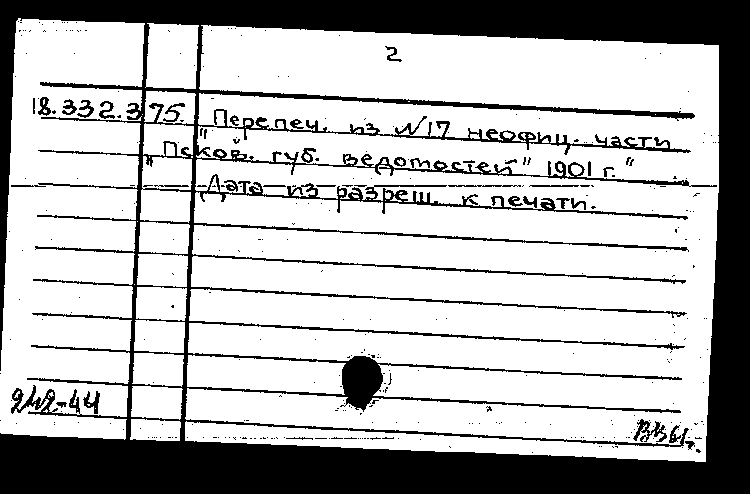 2
18.332.375. "Перепеч. из №17 неофиц. части
„Псков. губ. ведомостей" 1901 г."
Дата из разреш. к печати.
242-44